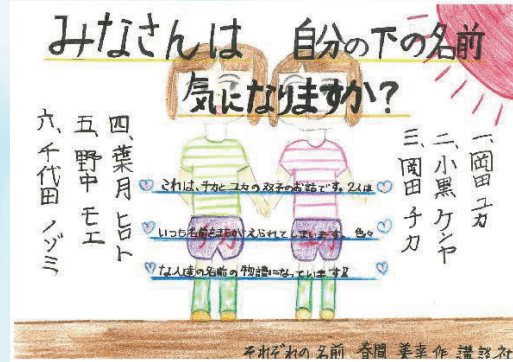 みなさんは 自分の下の名前
気になりますか?
一、岡田 ユカ
二、小黒 ケンヤ
三、岡田 チカ
四、葉月 ヒロト
五、野中 モエ
六、千代田 ノゾミ
これは、チカとユカの双子のお話です。2人は
いつも名前をまちがえられてしまいます。色々
な人達の名前の物語になっています!!
チカ
ユカ
それぞれの名前 春間 美幸 作 講談社